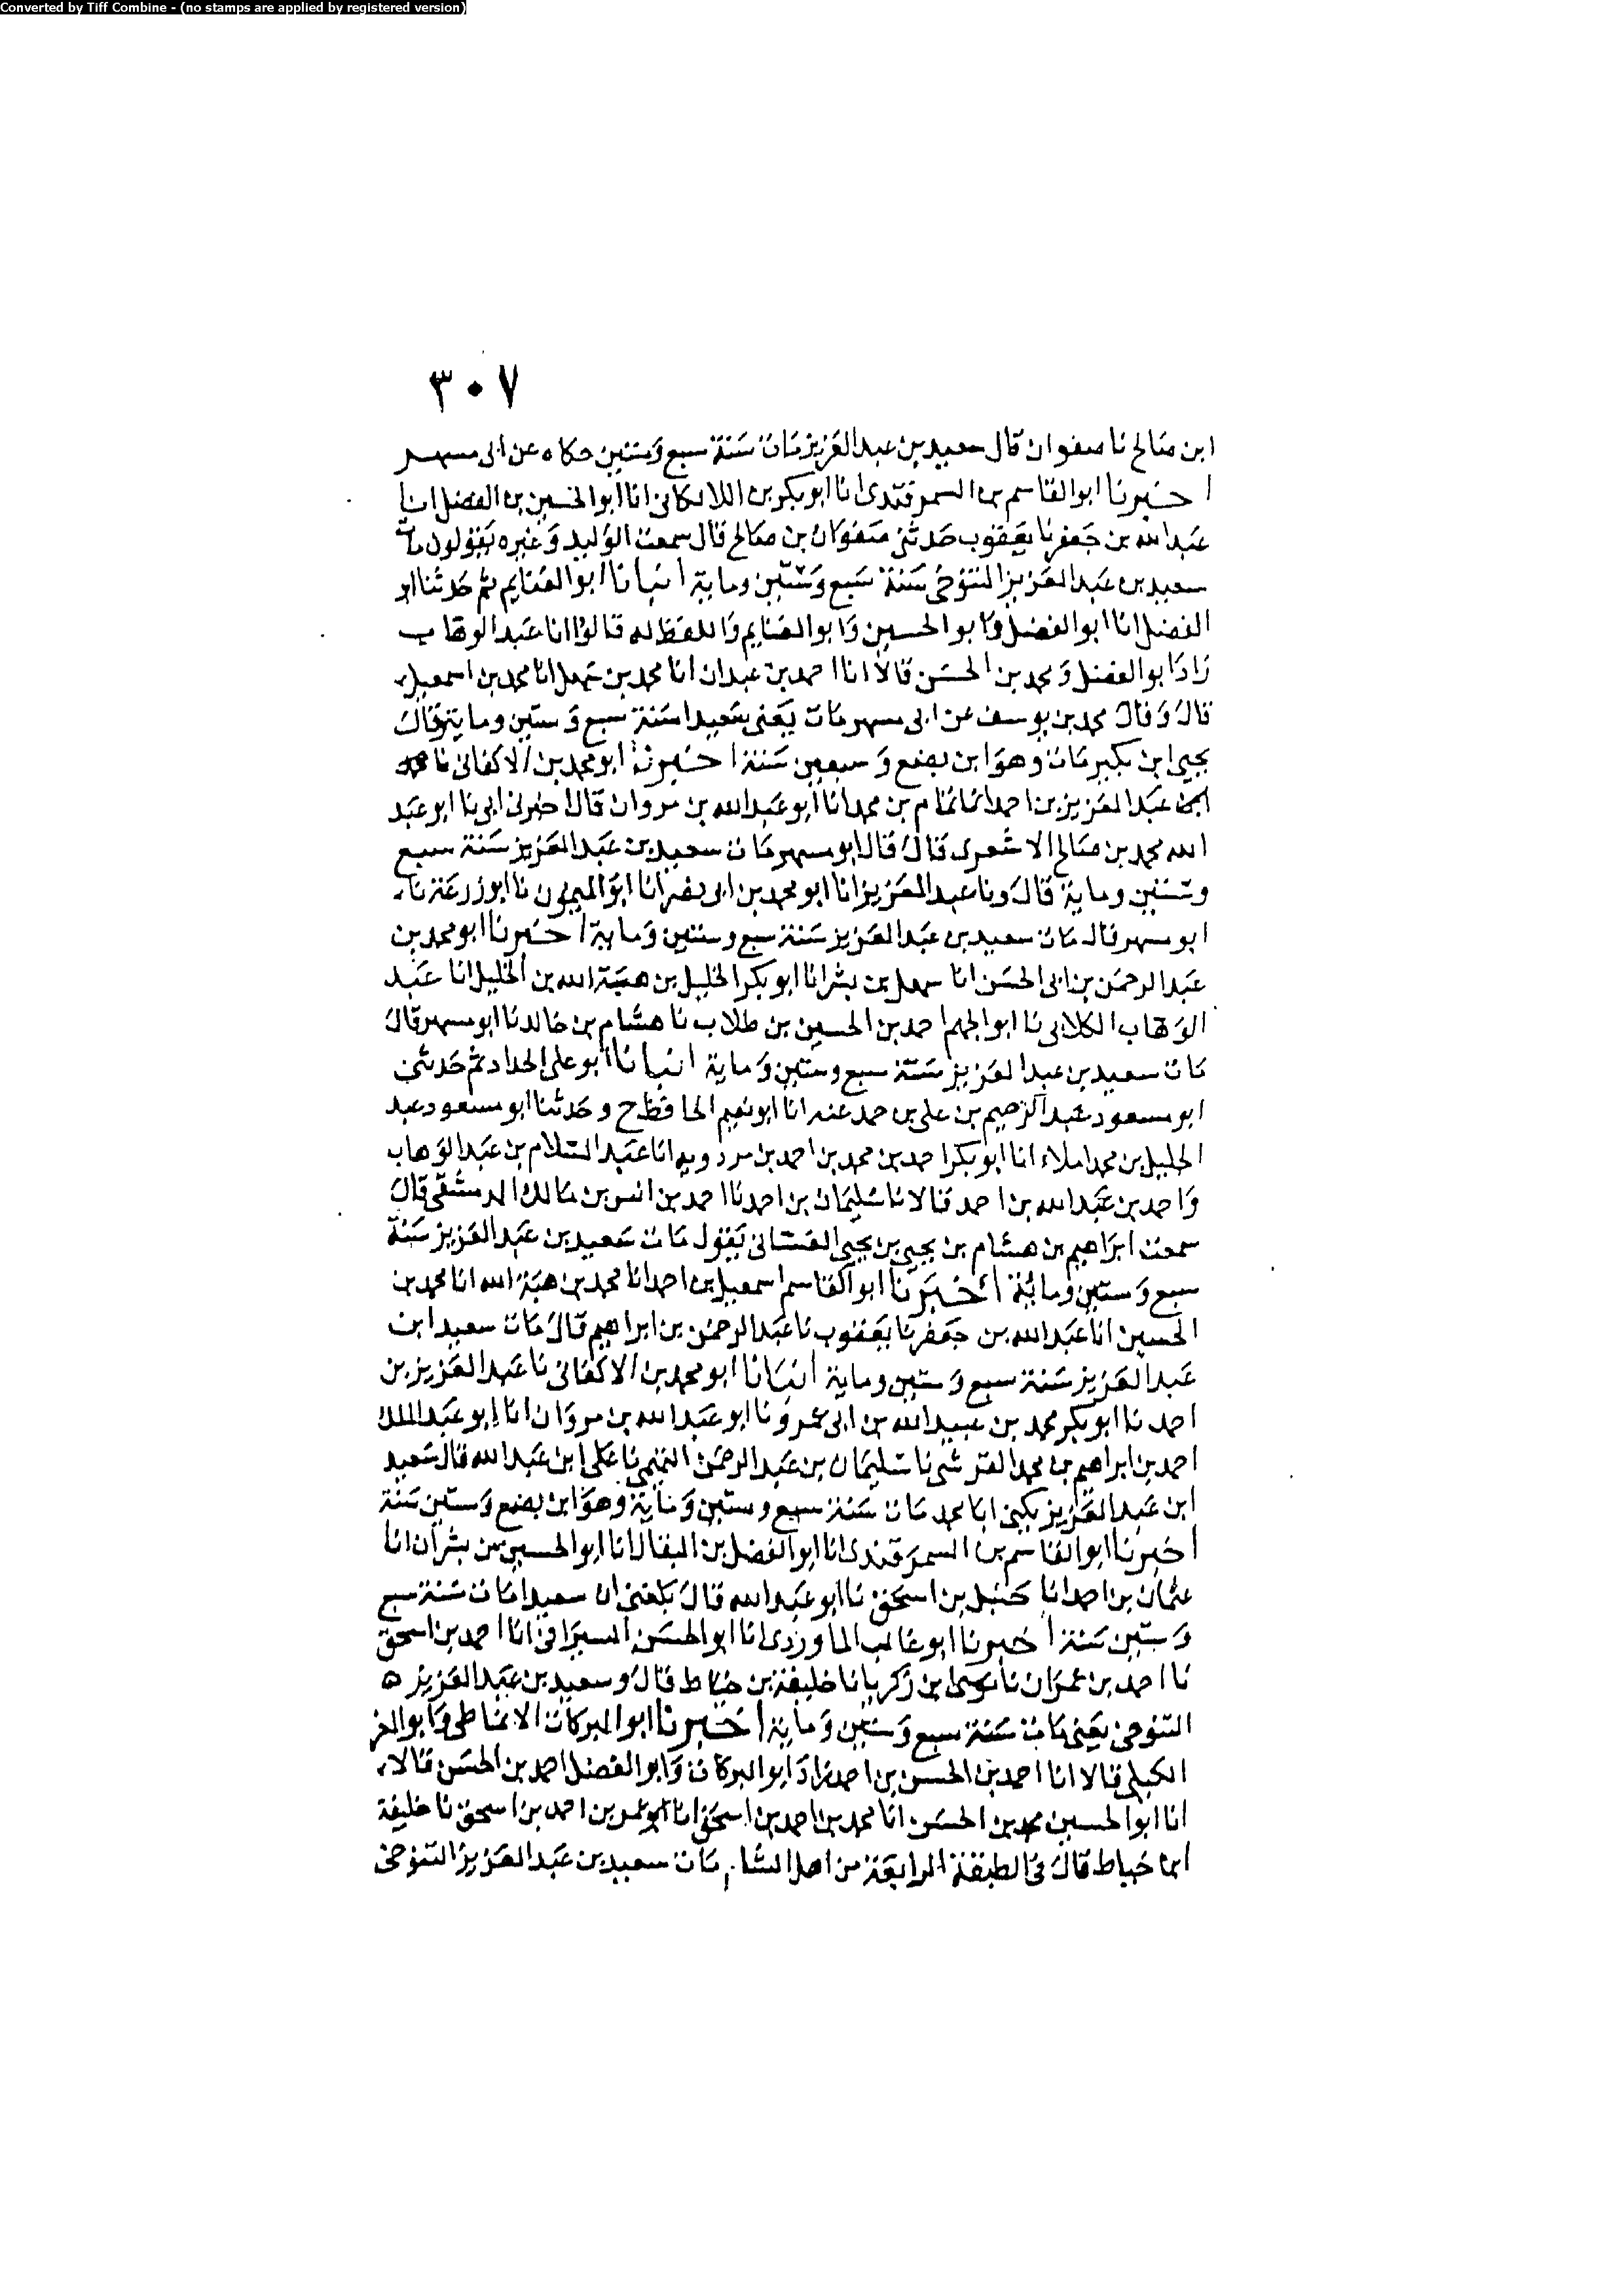 Converted by Tiff Combine - (no stamps are applied by registered version)
٣٠٧
ابن صالح نا صفوان قال سعيد بن عبد العزيز مات سنة سبع وستين حكاه عن ابى مسهر
اخبرنا ابو القاسم بن السمرقندى انا ابو بكر بن اللالكائى انا ابو الحسين بن الفضل انا
عبد الله بن جعفر نا يعقوب حدثنى صفوان بن صالح قال سمعت الوليد وغيره يقولون مات
سعيد بن عبد العزيز التنوخى سنة سبع وستين وماية انبانا ابو الغنايم ثم حدثنا ابو
الفضل انا ابو الفضل وابو الحسين وابو الغنايم واللفظ له قالوا انا عبد الوهاب
زاد ابو الفضل ومحمد بن الحسن قالا انا احمد بن عبدان انا محمد بن سهل انا محمد بن اسمعيل
قال وقال محمد بن يوسف عن ابى مسهر مات يعنى سعيدا سنة سبع وستين وماية وقال
يحيى ابن بكير مات وهو ابن بضع وسبعين سنة اخبرنا ابو محمد بن الاكفانى نا
عبد العزيز بن احمد انا تمام بن محمد انا ابو عبد الله بن مروان قال اخبرنى ابى نا ابو عبد
الله محمد بن صالح الاشعرى قال قال ابو مسهر مات سعيد بن عبد العزيز سنة سبع
وستين وماية قال ونا عبد العزيز انا ابو محمد بن ابى نصر انا ابو الميمون نا ابو زرعة نا
ابو مسهر قال مات سعيد بن عبد العزيز سنة سبع وستين وماية اخبرنا ابو محمد بن
عبد الرحمن بن ابى الحسن انا سهل بن بشر انا ابو بكر الخليل بن هبة الله بن الخليل انا عبد
الوهاب الكلابى نا ابو الجهم احمد بن الحسين بن طلاب نا هشام بن خالد نا ابو مسهر قال
مات سعيد بن عبد العزيز سنة سبع وستين وماية انبانا ابو على الحداد ثم حدثنى
ابو مسعود عبد الرحيم بن على بن حمد عنه انا ابو نعيم الحافظ ح وحدثنا ابو مسعود عبد
الجليل بن محمد املاء انا ابو بكر احمد بن محمد بن احمد بن مردويه انا عبد السلام بن عبد الوهاب
واحمد بن عبد الله بن احمد قالا نا سليمان بن احمد نا احمد بن انس بن مالك الدمشقى قال
سمعت ابراهيم بن هشام بن يحيى بن يحيى الغسانى يقول مات سعيد بن عبد العزيز سنة
سبع وستين ومائة أخبرنا ابو القاسم اسمعيل بن احمد انا محمد بن هبة الله انا محمد بن
الحسين انا عبد الله بن جعفر نا يعقوب نا عبد الرحمن بن ابراهيم قال مات سعيد ابن
عبد العزيز سنة سبع وستين وماية انبانا ابو محمد بن الاكفانى نا عبد العزيز بن
احمد نا ابو بكر محمد بن عبيد الله بن ابى عمرو نا ابو عبد الله بن مروان انا ابو عبد الملك
احمد بن ابراهيم بن محمد القرشى نا سليمان بن عبد الرحمن التميمى نا على ابن عبد الله قال سعيد
ابن عبد العزيز يكنى ابا محمد مات سنة سبع وستين وماية وهو ابن بضع وستين سنة
أخبرنا ابو القاسم بن السمرقندى انا ابو الفضل بن البقال انا ابو الحسين بن بشران انا
عثمان بن احمد انا حنبل بن اسحق نا ابو عبد الله قال بلغنى ان سعيدا مات سنة سبع
وستين سنة أخبرنا ابو غالب الماوردى انا ابو الحسن السيرافى انا احمد بن اسحق
نا احمد بن عمران نا موسى ابن زكريا نا خليفة بن خياط قال وسعيد بن عبد العزيز ه
التنوخى يعنى مات سنة سبع وستين وماية اخبرنا ابو البركات الانماطى وابو العز
الكيلى قالا انا احمد بن الحسن بن احمد زاد ابو البركات وابو الفضل احمد بن الحسن قالا
انا ابو الحسين محمد بن الحسن انا محمد بن احمد بن اسحق انا ابو عمر بن احمد بن اسحق نا خليفة
ابن خياط قال فى الطبقة الرابعة من اهل الشام مات سعيد بن عبد العزيز التنوخى